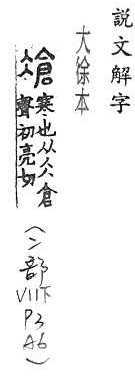 説文解字
大徐本
凔 寒也从仌倉
聲初亮切
(冫部
VII下
P3
A6)